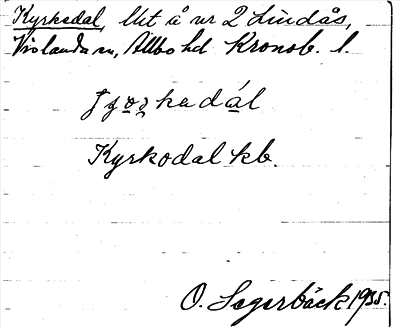 Kyrkedal, lht å nr 2 Lindås,
Vislanda sn, Allbo hd Kronob. l.
Kyrkodal kb.
O. Segerbäck 1935.